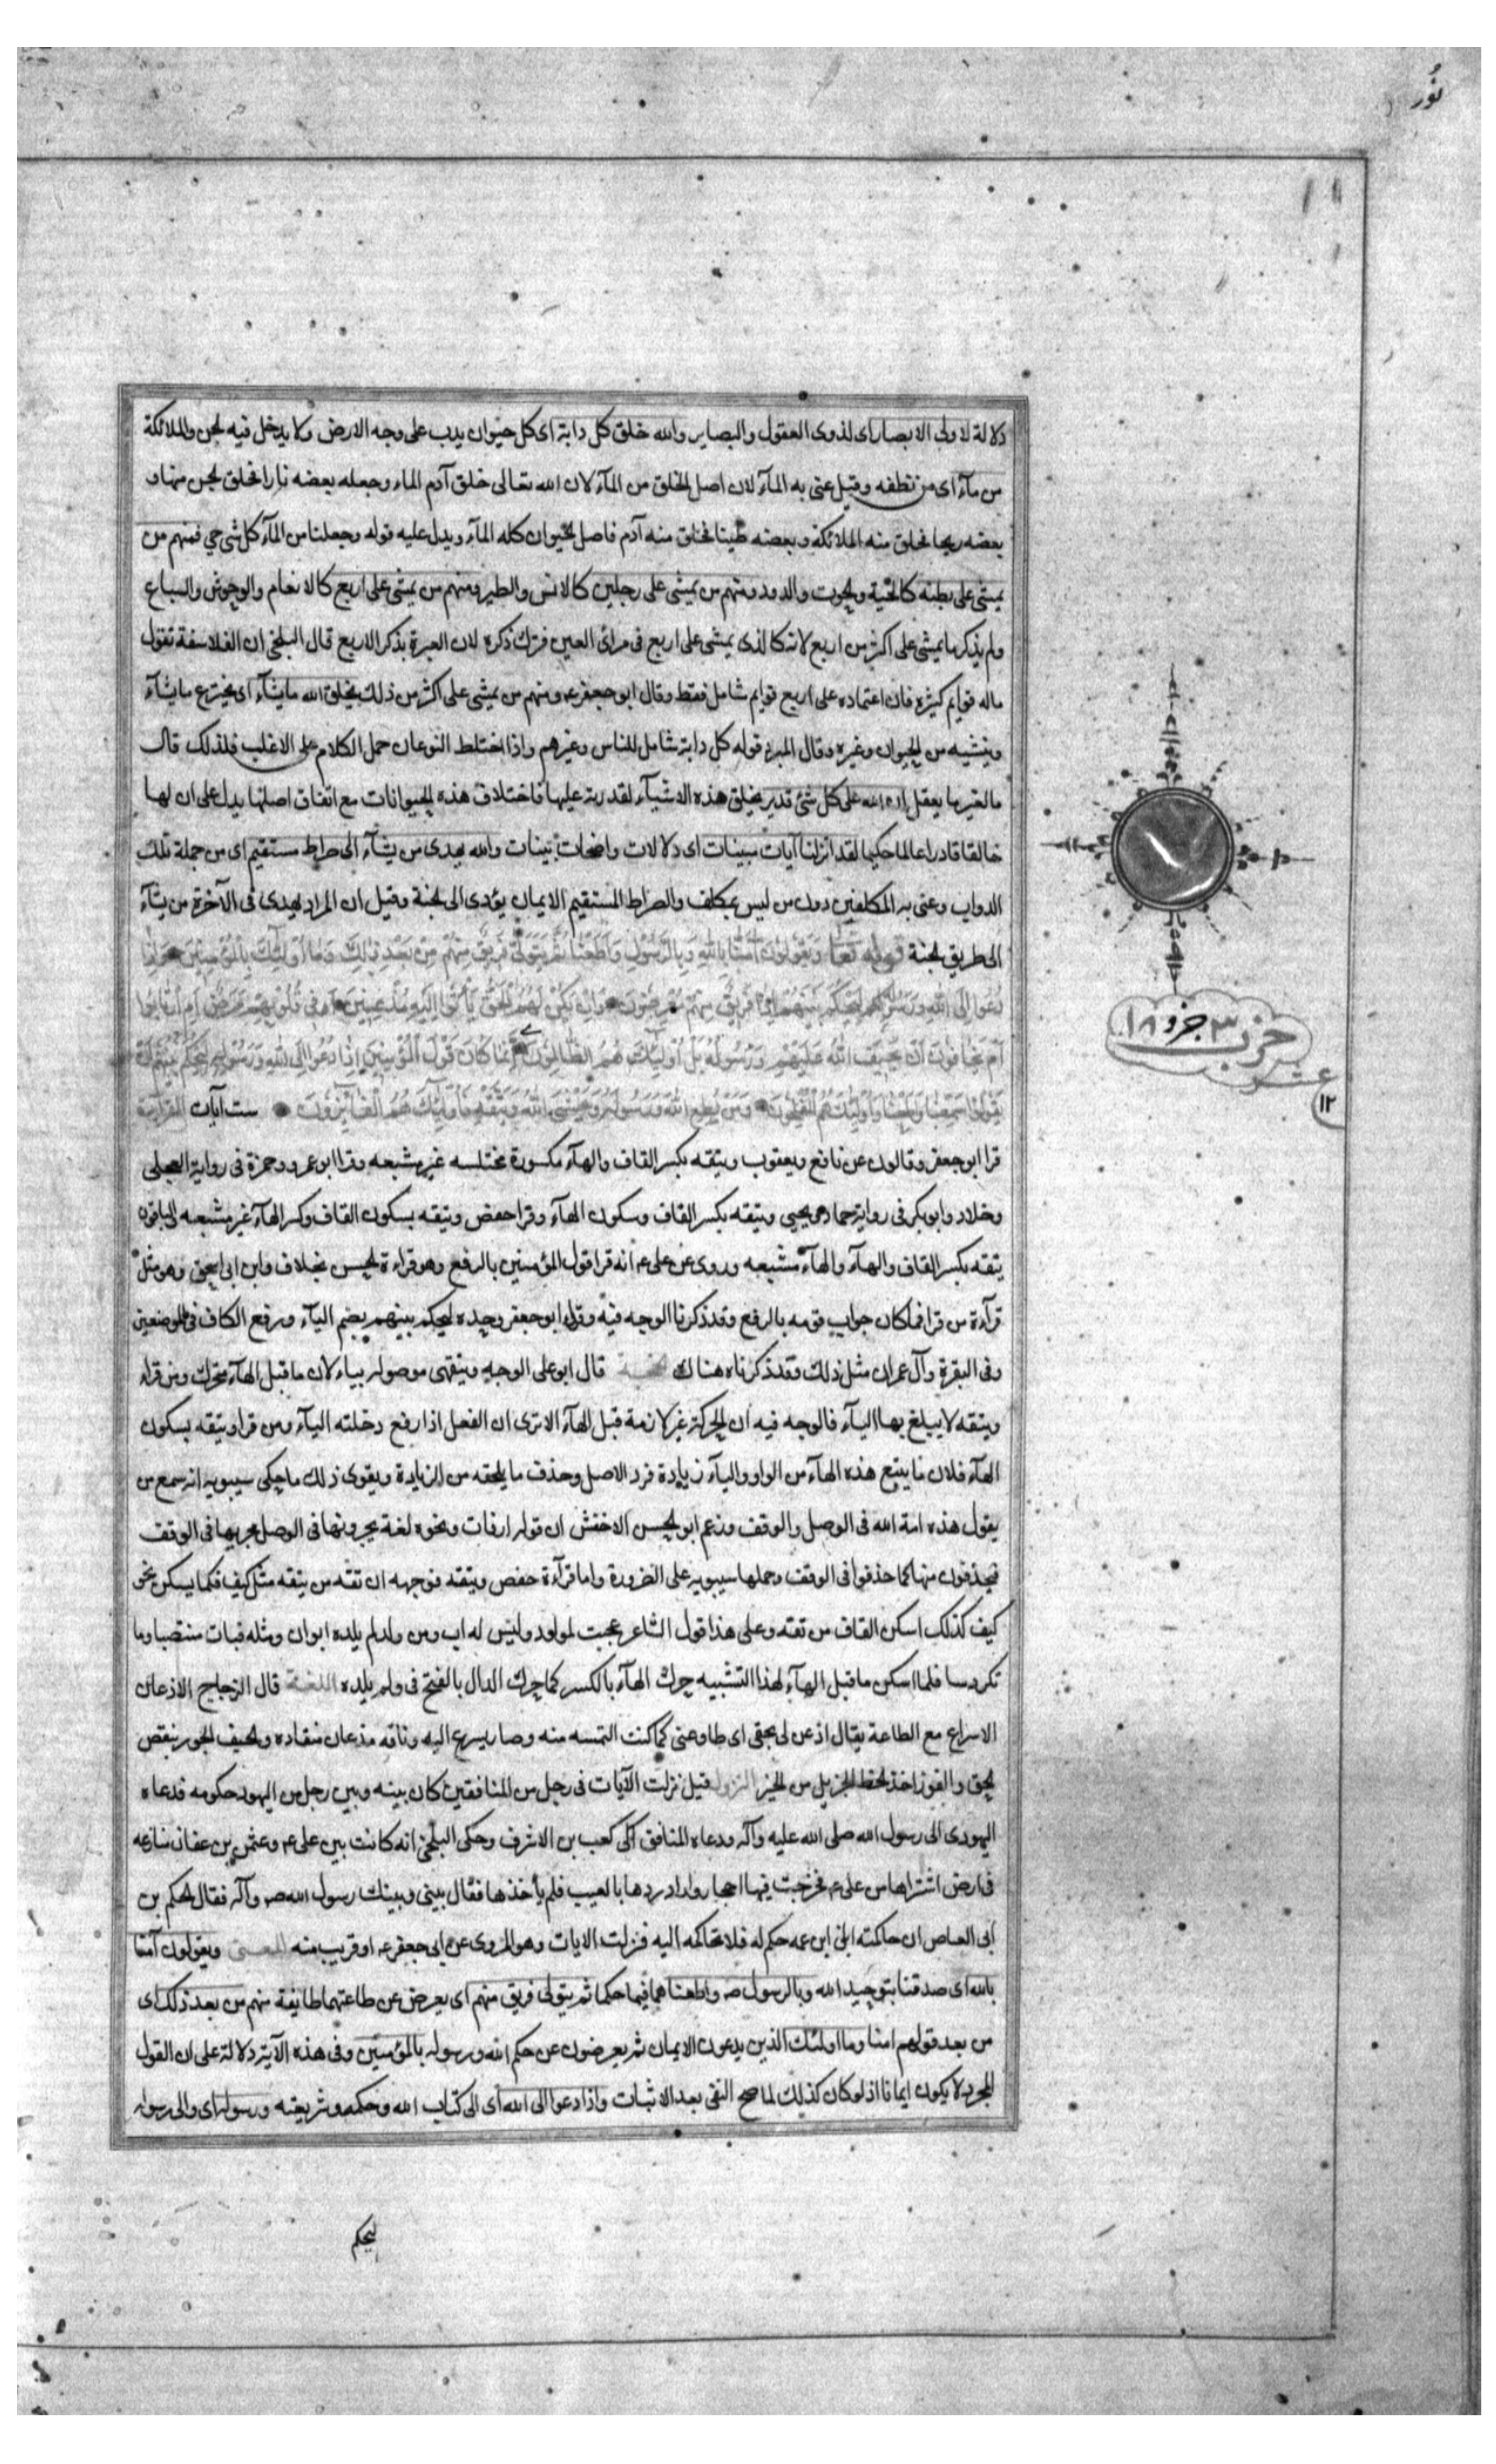 نُور
دلالة لاولى الابصار اى لذوى العقول والبصاير والله خلق كل دابة اى كل حيوان يدب على وجه الارض ولا يدخل فيه الجن والملائكة
من مآء اى من نطفه وقيل عنى به المآء لان اصل الخلق من المآء لان الله تعالى خلق آدم الماء وجعله بعضه نارا فخلق الجن منها و
بعضه ريحا فخلق منه الملائكة وبعضه طينا فخلق منه آدم فاصل الحيوان كله المآء ويدل عليه قوله وجعلنا من المآء كل شى حي فمنهم من
يمشى على بطنه كالحية والحوت والدود ومنهم من يمشى على رجلين كالانس والطير ومنهم من يمشى على اربع كالانعام والوحوش والسباع
ولم يذكر ما يمشى على اكثر من اربع لانه كالذى يمشى على اربع فى مرائ العين فترك ذكره لان العبرة بذكر الاربع قال البلخى ان الفلاسفة تقول
ماله قوايم كثيرة فان اعتماده على اربع قوايم شامل فقط وقال ابو جعفر ع ومنهم من يمشى على اكثر من ذلك يخلق الله ما يشآء اى يخترع ما يشآء
وينشيه من الحيوان وغيره وقال المبرد قوله كل دابة شامل للناس وغيرهم واذا اختلط النوعان حمل الكلام على الاغلب فلذلك قال
ما لغير ما يعقل ان الله على كل شئ قدير يخلق هذه الاشيآء لقدرته عليها فاختلاف هذه الحيوانات مع اتفاق اصلها يدل على ان لها
خالقا قادرا عالما حكيما لقد انزلنا آيات مبينات اى دلالات واضحات بينات والله يهدى من يشآء الى صراط مستقيم اى من جملة تلك
الدواب وعنى به المكلفين دون من ليس بمكلف والصراط المستقيم الايمان يؤدى الى الجنة وقيل ان المراد يهدى فى الآخرة من يشآء
الى طريق الجنة قوله تعا وَيَقُولُونَ آمَنَّا بِاللهِ وَبِالرَّسُولِ وَاَطَعْنَا ثُمَّ يَتَوَلَّى فَرِيقٌ مِنْهُمْ مِنْ بَعْدِ ذٰلِكَ وَمَا اُولٰئِكَ بِالْمُؤْمِنِينَ وَاِذَا
دُعُوا اِلَى اللهِ وَرَسُولِهِ لِيَحْكُمَ بَيْنَهُمْ اِذَا فَرِيقٌ مِنْهُمْ مُعْرِضُونَ وَاِنْ يَكُنْ لَهُمُ الْحَقُّ يَأْتُوا اِلَيْهِ مُذْعِنِينَ اَفِى قُلُوبِهِمْ مَرَضٌ اَمِ ارْتَابُوا
اَمْ يَخَافُونَ اَنْ يَحِيفَ اللهُ عَلَيْهِمْ وَرَسُولُهُ بَلْ اُولٰئِكَ هُمُ الظَّالِمُونَ اِنَّمَا كَانَ قَوْلَ الْمُؤْمِنِينَ اِذَا دُعُوا اِلَى اللهِ وَرَسُولِهِ لِيَحْكُمَ بَيْنَهُمْ اَنْ
يَقُولُوا سَمِعْنَا وَاَطَعْنَا وَاُولٰئِكَ هُمُ الْمُفْلِحُونَ وَمَنْ يُطِعِ اللهَ وَرَسُولَهُ وَيَخْشَ اللهَ وَيَتَّقْهِ فَاُولٰئِكَ هُمُ الْفَائِزُونَ ست آيات القراءة
قرا ابو جعفر وقالون عن نافع ويعقوب ويتقه بكسر القاف والهآء مكسورة مختلسه غير مشبعه وقرا ابو عمرو وحمزة فى رواية العجلى
وخلاد وابو بكر فى رواية حماد ويحيى ويتقه بكسر القاف وسكون الهآء وقرا حفص ويتقه بسكون القاف وكسر الهآء غير مشبعه والباقون
يتقه بكسر القاف والهآء والهآء مشبعه وروى عن على ع انه قرا قول المؤمنين بالرفع وهو قراءة الحسن بخلاف وابن ابى اسحق وهو مثل
قرآءة من قرا فما كان جواب قومه بالرفع وقد ذكرنا الوجه فيه وقرا ابو جعفر وحده ليحكم بينهم بضم اليآء ورفع الكاف فى الموضعين
وفى البقرة وآل عمران مثل ذلك وقد ذكرناه هناك الحجة قال ابو على الوجه ويتقهى موصوله بياء لان ما قبل الهآء متحرك ومن قراء
ويتقه لا يبلغ بها اليآء فالوجه فيه ان الحركة غير لازمة قبل الهآء الا ترى ان الفعل اذا رفع دخلته اليآء ومن قرا ويتقه بسكون
الهآء فلان ما يتبع هذه الهآء من الواو واليآء زيادة فرد الاصل وحذف ما يلحقه من الزيادة ويقوى ذلك ما حكى سيبويه انه سمع من
يقول هذه امة الله فى الوصل والوقف وزعم ابو الحسن الاخفش ان قوله ارقات ونحوه لغة يجرونها فى الوصل مجريها فى الوقف
فيحذفون منها كما حذفوا فى الوقف وحملها سيبويه على الضرورة واما قرآءة حفص ويتقه فوجهه ان تقه من يتقه مثل كيف فكما يسكن نحو
كيف كذلك اسكن القاف من تقه وعلى هذا قول الشاعر عجبت لمولود وليس له اب ومن ولد لم يلده ابوان ومثله فبات منتصبا وما
تكردسا فلما اسكن ما قبل الهآء لهذا التشبيه حرك الهآء بالكسر كما حرك الدال بالفتح فى ولم يلده اللغة قال الزجاج الاذعان
الاسراع مع الطاعة يقال اذعن لى بحقى اى طاوعنى كما كنت التمسه منه وصار يسرع اليه وناقه مذعان منقاده والحيف الجور بنقص
الحق والفوز اخذ الحظ الجزيل من الخير النزول قيل نزلت الآيات فى رجل من المنافقين كان بينه وبين رجل من اليهود حكومه فدعاه
اليهودى الى رسول الله صلى الله عليه وآله ودعاه المنافق الى كعب بن الاشرف وحكى البلخى انه كانت بين على ع وعثمن بن عفان منازعه
فى ارض اشتراها من على ع فخرجت فيها احجار واراد ردها بالعيب فلم يأخذها فقال بينى وبينك رسول الله صه وآله فقال الحكم بن
ابى العاص ان حاكمته الى ابن عمه حكم له فلا تحاكمه اليه فنزلت الايات وهو المروى عن ابى جعفر ع او قريب منه المعنى ويقولون آمنا
بالله اى صدقنا بتوحيد الله وبالرسول صه واطعناهما فيما حكما ثم يتولى فريق منهم اى يعرض عن طاعتهما طايفة منهم من بعد ذلك اى
من بعد قولهم امنا وما اولئك الذين يدعون الايمان ثم يعرضون عن حكم الله ورسوله بالمؤمنين وفى هذه الآية دلالة على ان القول
المجرد لا يكون ايمانا اذ لو كان كذلك لما صح النفى بعد الاثبات واذا دعوا الى الله اى الى كتاب الله وحكمه وشريعته ورسوله اى والى رسوله
حزب ٣ جزو ١٨
عشر
١٢
ليحكم